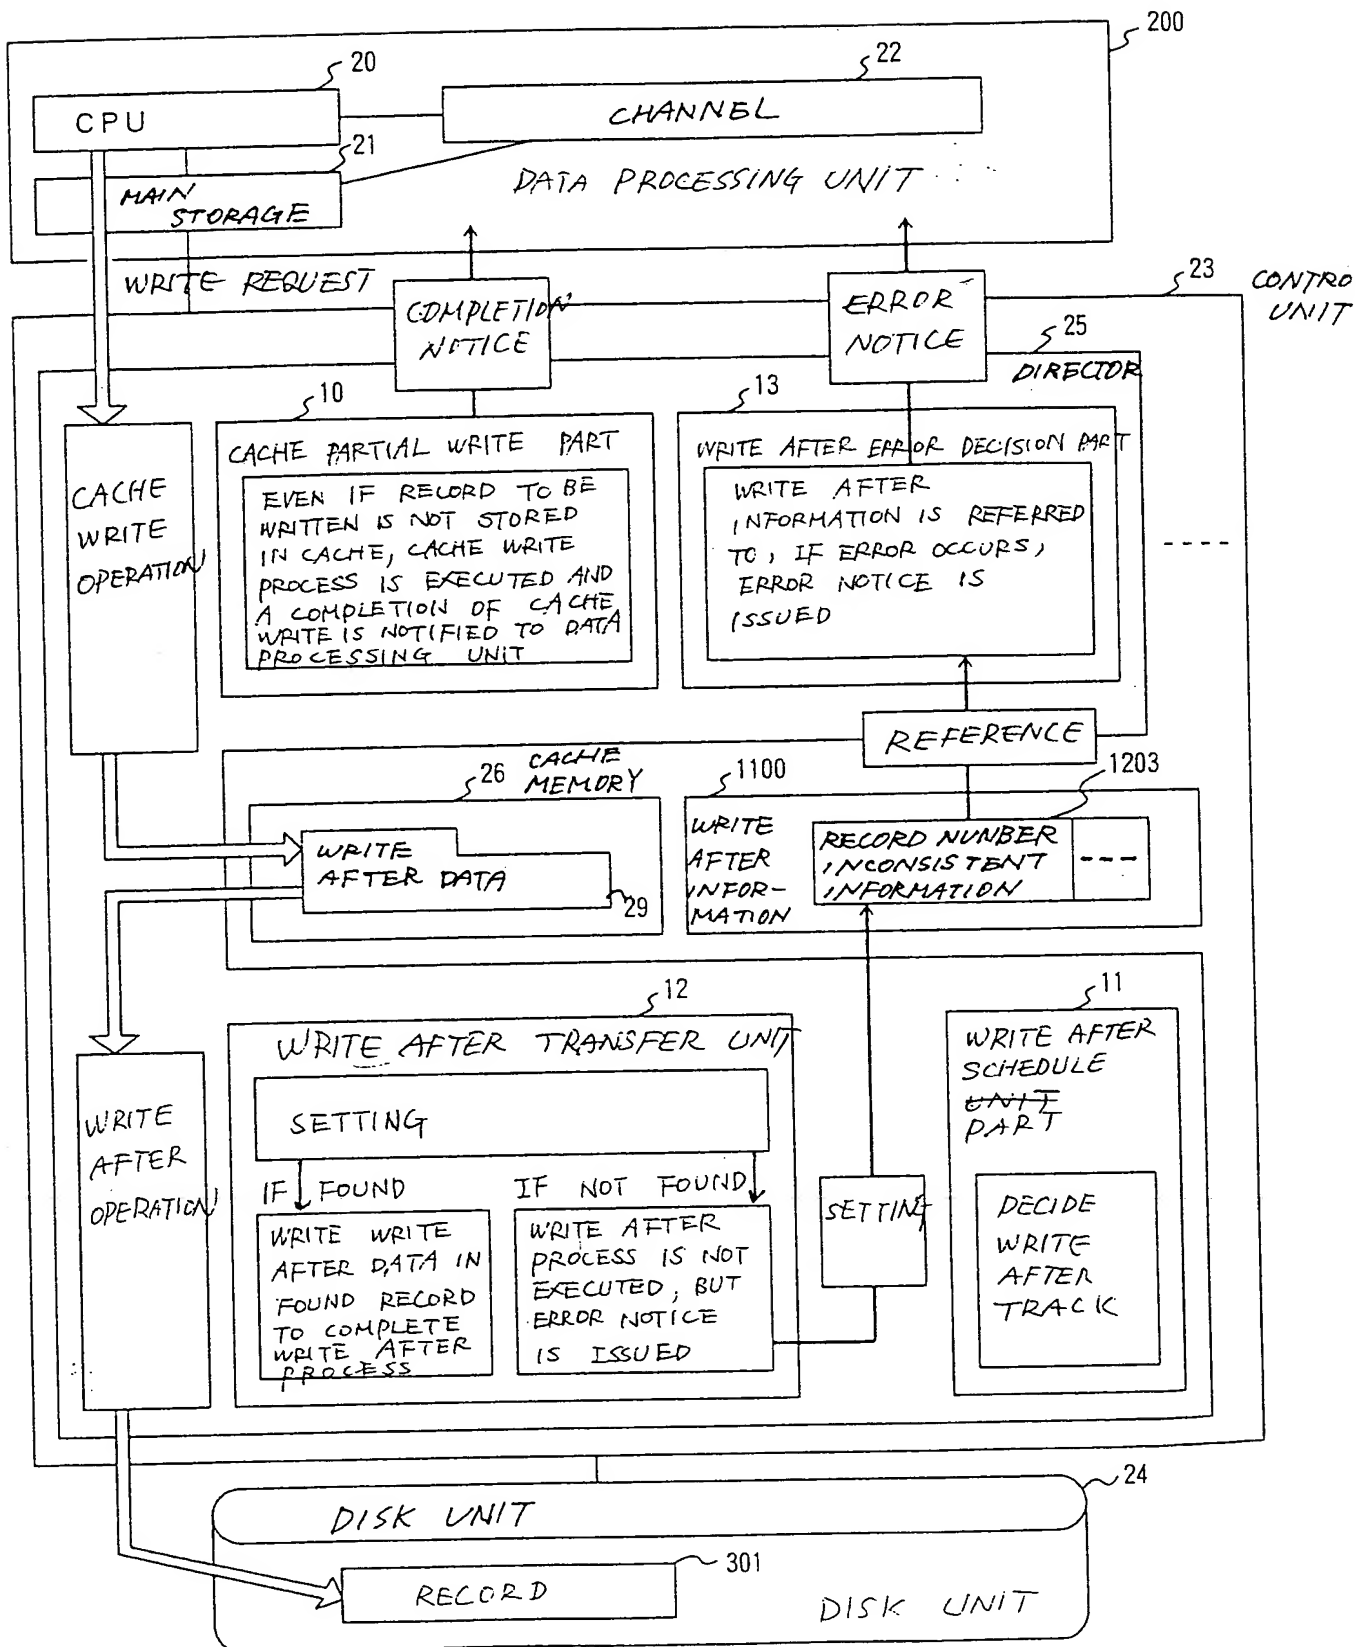 200
20
22
CPU
CHANNEL
21
MAIN
STORAGE
DATA PROCESSING UNIT
WRITE REQUEST
COMPLETION
NOTICE
ERROR
NOTICE
23
CONTRO
UNIT
25
DIRECTOR
10
13
CACHE
WRITE
OPERATION
CACHE PARTIAL WRITE PART
EVEN IF RECORD TO BE
WRITTEN IS NOT STORED
IN CACHE, CACHE WRITE
PROCESS IS EXECUTED AND
A COMPLETION OF CACHE
WRITE IS NOTIFIED TO DATA
PROCESSING UNIT
WRITE AFTER ERROR DECISION PART
WRITE AFTER
INFORMATION IS REFERRED
TO, IF ERROR OCCURS,
ERROR NOTICE IS
ISSUED
----
REFERENCE
26
CACHE
MEMORY
1100
1203
WRITE
AFTER DATA
29
WRITE
AFTER
INFOR-
MATION
RECORD NUNBER
INCONSISTENT
INFORMATION
---
12
11
WRITE
AFTER
OPERATION
WRITE AFTER TRANSFER UNIT
SETTING
IF FOUND
IF NOT FOUND
WRITE WRITE
AFTER DATA IN
FOUND RECORD
TO COMPLETE
WRITE AFTER
PROCESS
WRITE AFTER
PROCESS IS NOT
EXECUTED, BUT
ERROR NOTICE
IS ISSUED
SETTING
WRITE AFTER
SCHEDULE
UNIT
PART
DECIDE
WRITE
AFTER
TRACK
24
DISK UNIT
301
RECORD
DISK UNIT